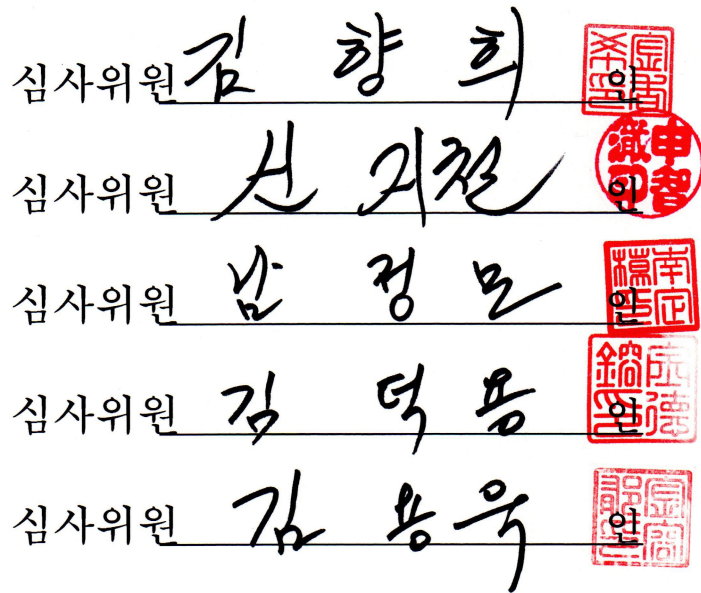 심사위원 김 향 희 인
심사위원 신 지철 인
심사위원 남 정 모 인
심사위원 김 덕 용 인
심사위원 김 용 욱 인